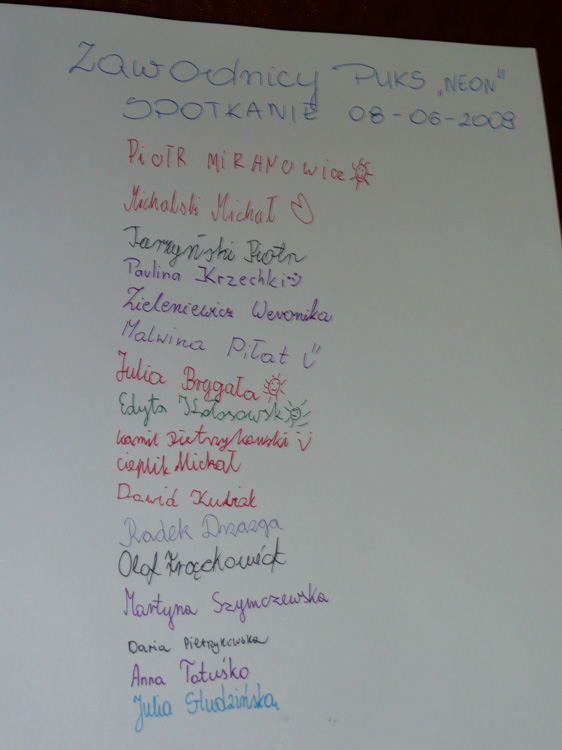 Zawodnicy PUKS „NEON"
SPOTKANIE 08-06-2009
PiOTR MIRANOWicz
Michalski Michał
Jarzyński Piotr
Paulina Krzechki
Zieleniewicz Weronika
Malwina Piłat
Julia Brygała
Edyta Kołosowsk
kamil Pietrzykowski
cieplik Michał
Dawid Kubiak
Radek Drzazga
Olaf
Martyna Szymczewska
Daria Pietrykowska
Anna Tatuśko
Julia Słudzińska